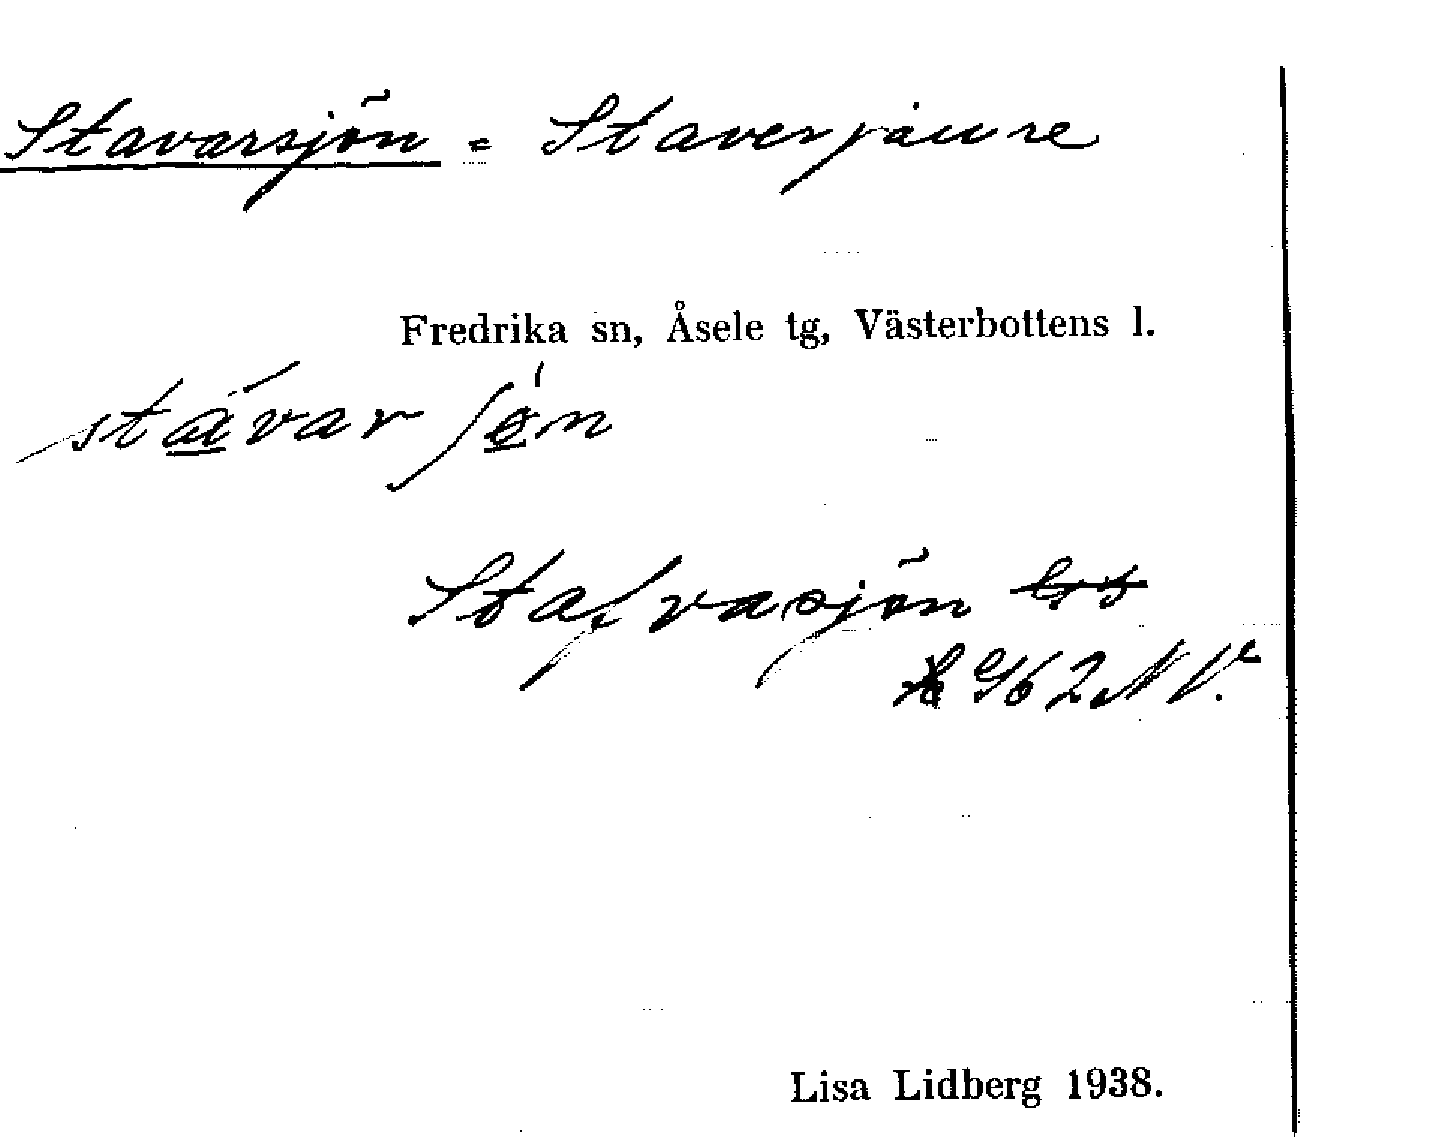 Stavarsjön = Staverjaure
Fredrika sn, Åsele tg, Västerbottens l.
Stafvasjön
62 NV.
Lisa Lidberg 1938.